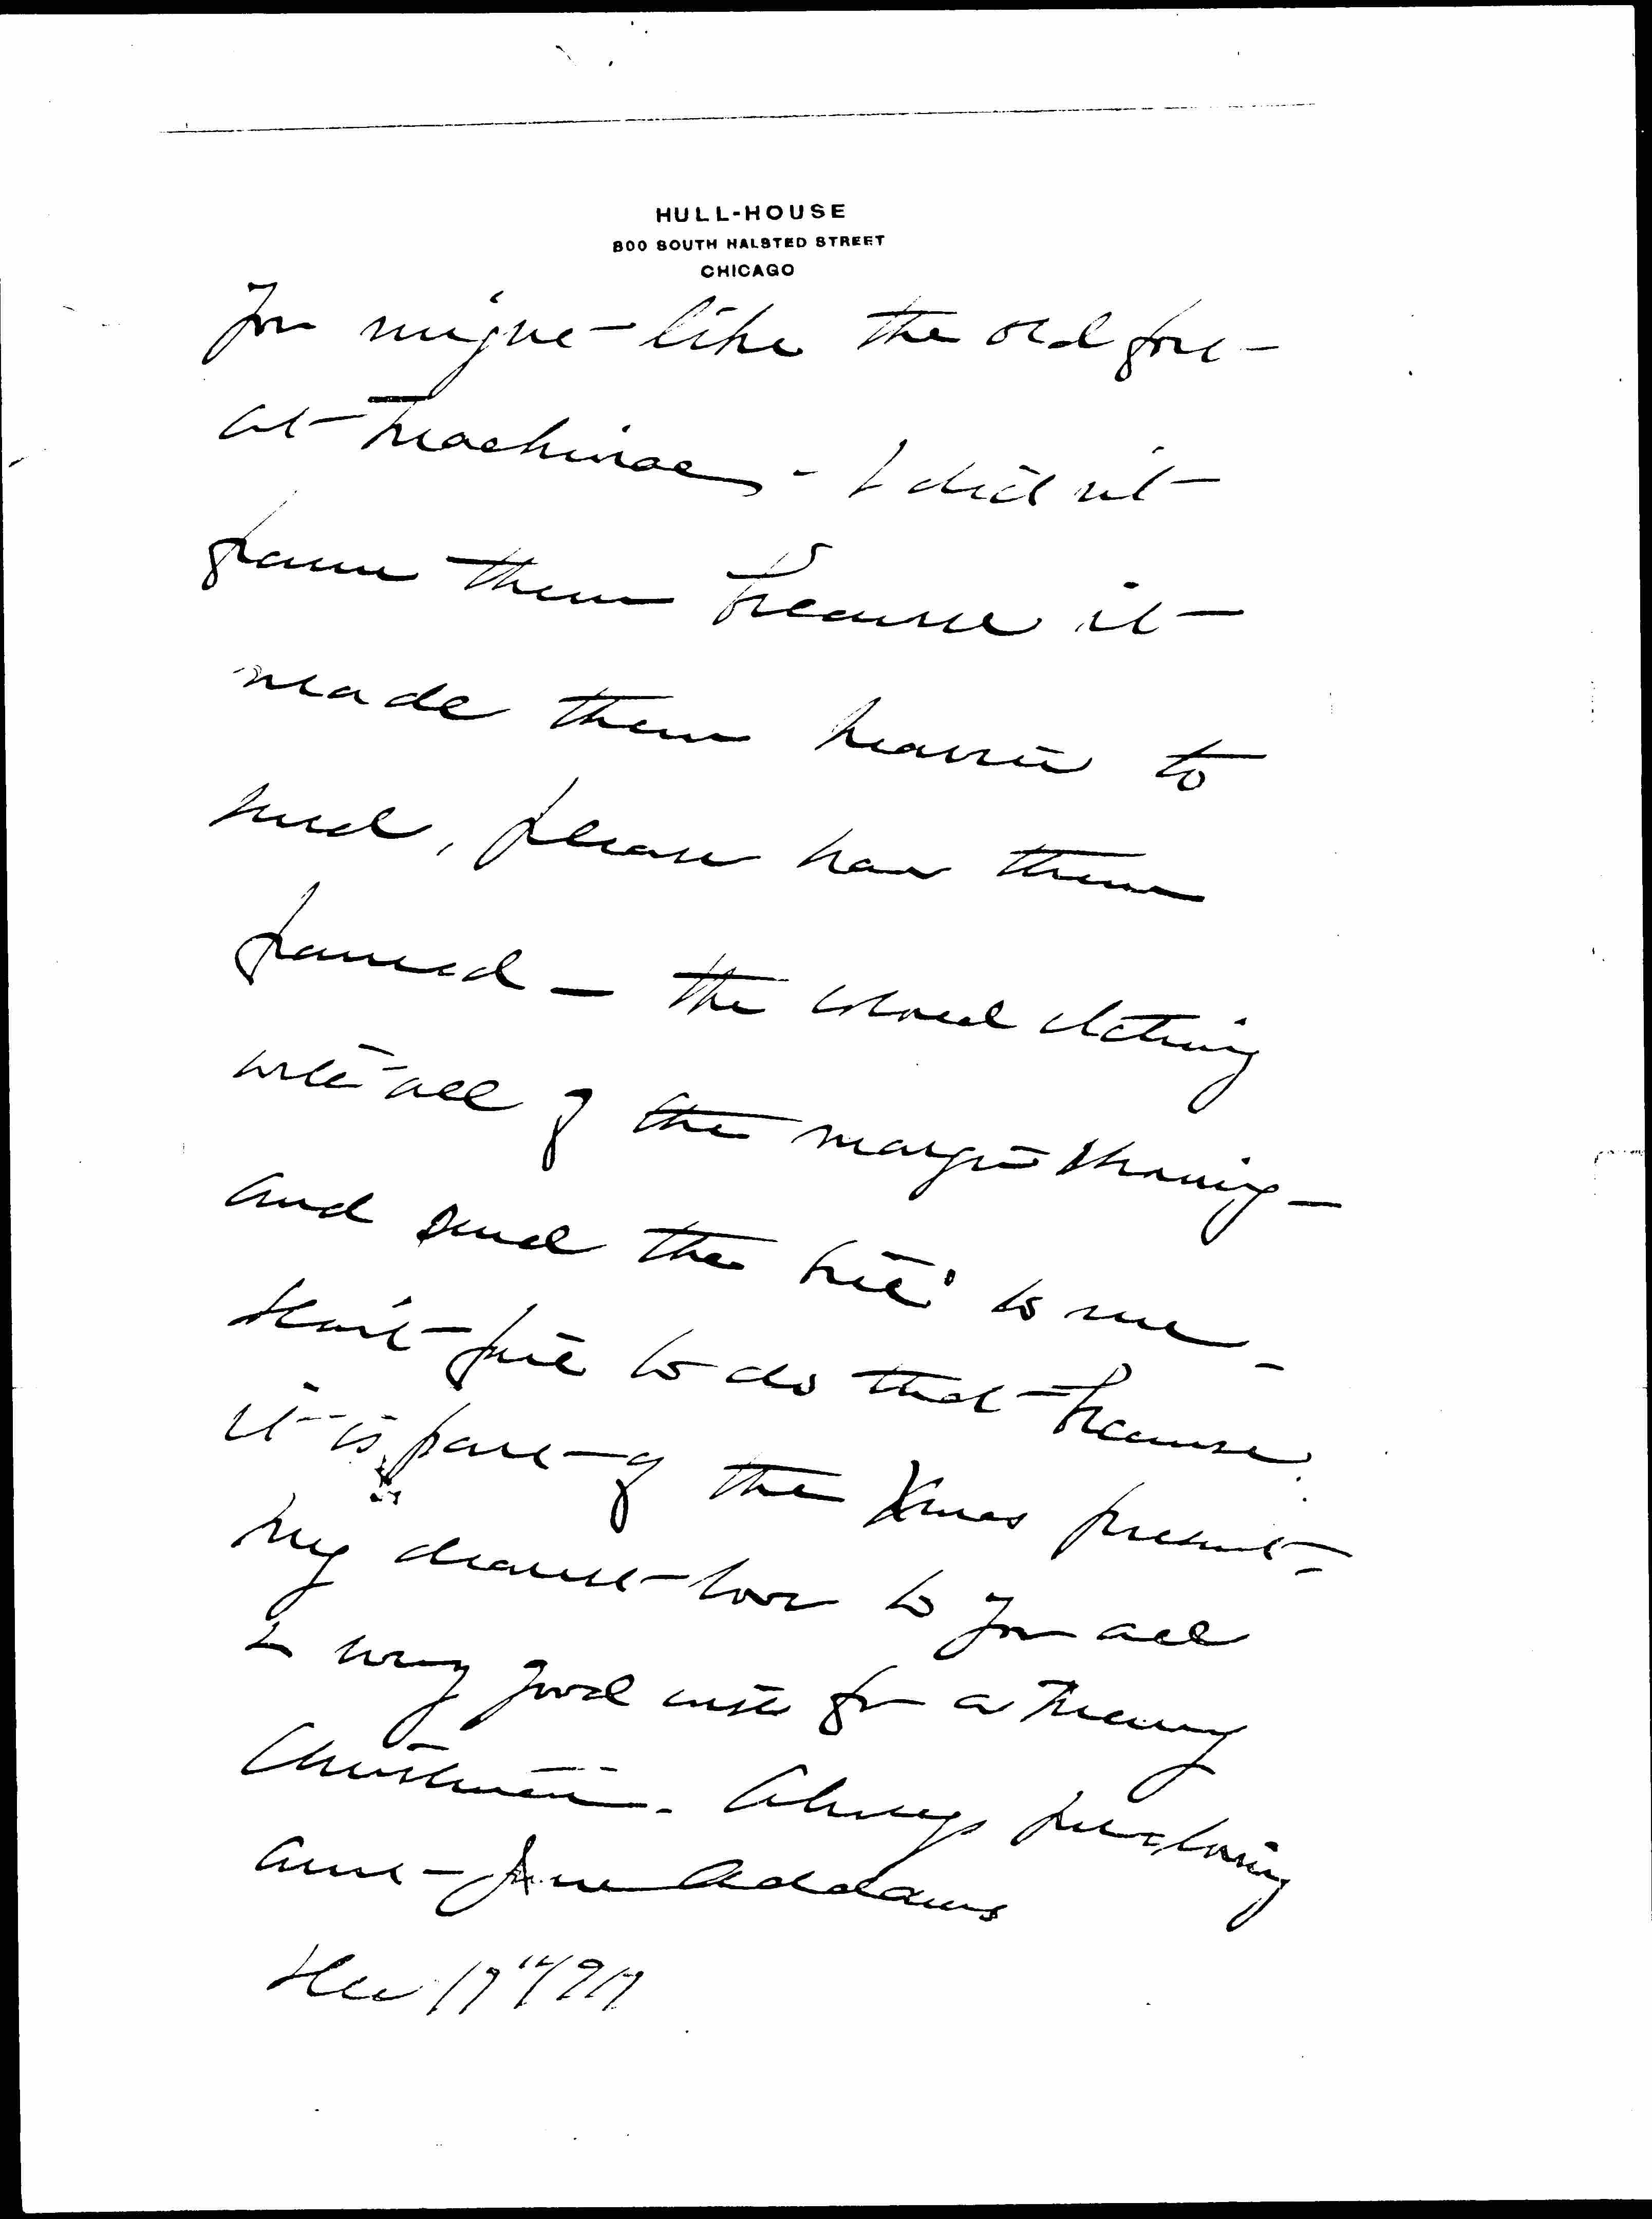 HULL-HOUSE
800 SOUTH HALSTED STREET
CHICAGO
you might like the old fort
at Mackinac - I didn't
frame them because it
made them heavier to
send, please have them
framed - the colored etching
with all of the margin showing -
and send the bill to me -
Don't fail to do that because
it is part of the Xmas present -
My dearest love to you all
& every good wish for a Merry
Christmas. Always your loving
aunt - Jane Addams
Dec 17" 1917